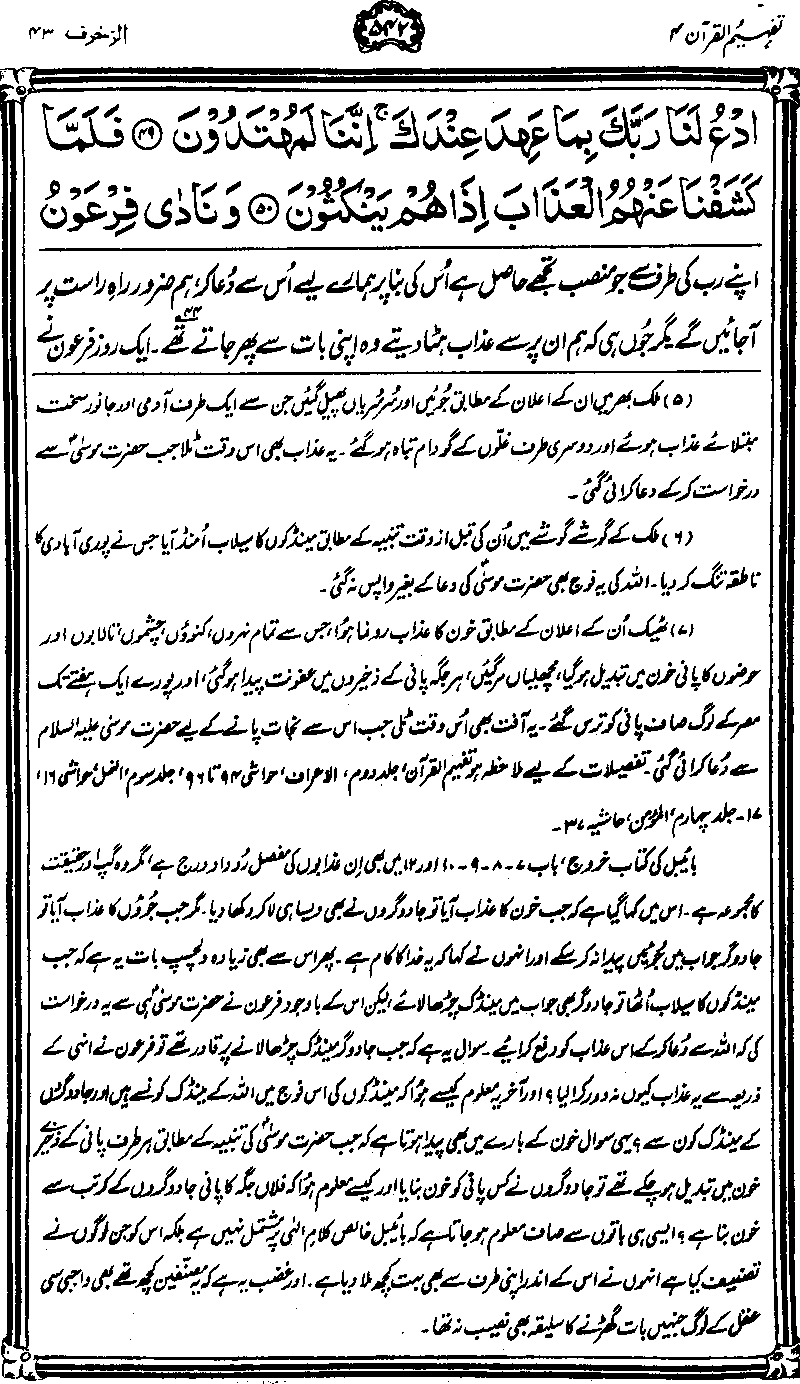 تفہیم القرآن ۴
۵۴۲
الزخرف ۴۳
ادْعُ لَنَا رَبَّكَ بِمَا عَهِدَ عِنْدَكَ ۚ إِنَّنَا لَمُهْتَدُوْنَ ﴿۴۹﴾ فَلَمَّا
كَشَفْنَا عَنْهُمُ الْعَذَابَ إِذَا هُمْ يَنْكُثُوْنَ ﴿۵۰﴾ وَنَادٰى فِرْعَوْنُ
اپنے رب کی طرف سے جو منصب تجھے حاصل ہے اُس کی بنا پر ہمارے لیے اُس سے دُعا کر، ہم ضرور راہِ راست پر
آجائیں گے مگر جُوں ہی کہ ہم ان پر سے عذاب ہٹا دیتے وہ اپنی بات سے پھر جاتے تھے۴۴۔ ایک روز فرعون نے
(۵) ملک بھر میں ان کے اعلان کے مطابق جُوئیں اور سُرسُریاں پھیل گئیں جن سے ایک طرف آدمی اور جانور سخت
مبتلائے عذاب ہوئے اور دوسری طرف غلّوں کے گودام تباہ ہو گئے۔ یہ عذاب بھی اس وقت ٹلا جب حضرت موسیٰؑ سے
درخواست کر کے دعا کرائی گئی۔
(۶) ملک کے گوشے گوشے میں اُن کی قبل از وقت تنبیہ کے مطابق مینڈکوں کا سیلاب اُمنڈ آیا جس نے پوری آبادی کا
ناطقہ تنگ کر دیا۔ اللہ کی یہ فوج بھی حضرت موسیٰؑ کی دعا کے بغیر واپس نہ گئی۔
(۷) ٹھیک اُن کے اعلان کے مطابق خون کا عذاب رونما ہوا، جس سے تمام نہروں، کنوؤں، چشموں، تالابوں اور
حوضوں کا پانی خون میں تبدیل ہو گیا، مچھلیاں مر گئیں، ہر جگہ پانی کے ذخیروں میں عفونت پیدا ہو گئی، اور پورے ایک ہفتے تک
مصر کے لوگ صاف پانی کو ترس گئے۔ یہ آفت بھی اُس وقت ٹلی جب اس سے نجات پانے کے لیے حضرت موسیٰ علیہ السلام
سے دُعا کرائی گئی۔ تفصیلات کے لیے ملاحظہ ہو تفہیم القرآن، جلد دوم، الاعراف، حواشی ۹۴ تا ۹۶، جلد سوم، النمل، حواشی ۱۶،
۱۷۔ جلد چہارم، المؤمن، حاشیہ ۳۷۔
بائیبل کی کتاب خروج، باب ۷۔۸۔۹۔۱۰ اور ۱۲ میں بھی اِن عذابوں کی مفصل رُوداد درج ہے، مگر وہ گپ اور حقیقت
کا مجموعہ ہے۔ اس میں کہا گیا ہے کہ جب خون کا عذاب آیا تو جادوگروں نے بھی ویسا ہی لا کر دکھا دیا۔ مگر جب جُوؤں کا عذاب آیا تو
جادوگر جواب میں جُوئیں پیدا نہ کر سکے اور انہوں نے کہا کہ یہ خدا کا کام ہے۔ پھر اس سے بھی زیادہ دلچسپ بات یہ ہے کہ جب
مینڈکوں کا سیلاب اُٹھا تو جادوگر بھی جواب میں مینڈک چڑھا لائے، لیکن اس کے باوجود فرعون نے حضرت موسیٰؑ ہی سے یہ درخواست
کی کہ اللہ سے دُعا کر کے اس عذاب کو دفع کرائیے۔ سوال یہ ہے کہ جب جادوگر مینڈک چڑھا لانے پر قادر تھے تو فرعون نے انہی کے
ذریعہ سے یہ عذاب کیوں نہ دور کرا لیا؟ اور آخر یہ معلوم کیسے ہوا کہ مینڈکوں کی اس فوج میں اللہ کے مینڈک کونسے ہیں اور جادوگروں
کے مینڈک کون سے؟ یہی سوال خون کے بارے میں بھی پیدا ہوتا ہے کہ جب حضرت موسیٰؑ کی تنبیہ کے مطابق ہر طرف پانی کے ذخیرے
خون میں تبدیل ہو چکے تھے تو جادوگروں نے کس پانی کو خون بنایا اور کیسے معلوم ہوا کہ فلاں جگہ کا پانی جادوگروں کے کرتب سے
خون بنا ہے؟ ایسی ہی باتوں سے صاف معلوم ہو جاتا ہے کہ بائیبل خالص کلامِ الٰہی پر مشتمل نہیں ہے بلکہ اس کو جن لوگوں نے
تصنیف کیا ہے انہوں نے اس کے اندر اپنی طرف سے بھی بہت کچھ ملا دیا ہے۔ اور غضب یہ ہے کہ یہ مصنّفین کچھ تھے بھی واجبی سی
عقل کے لوگ جنہیں بات گھڑنے کا سلیقہ بھی نصیب نہ تھا۔